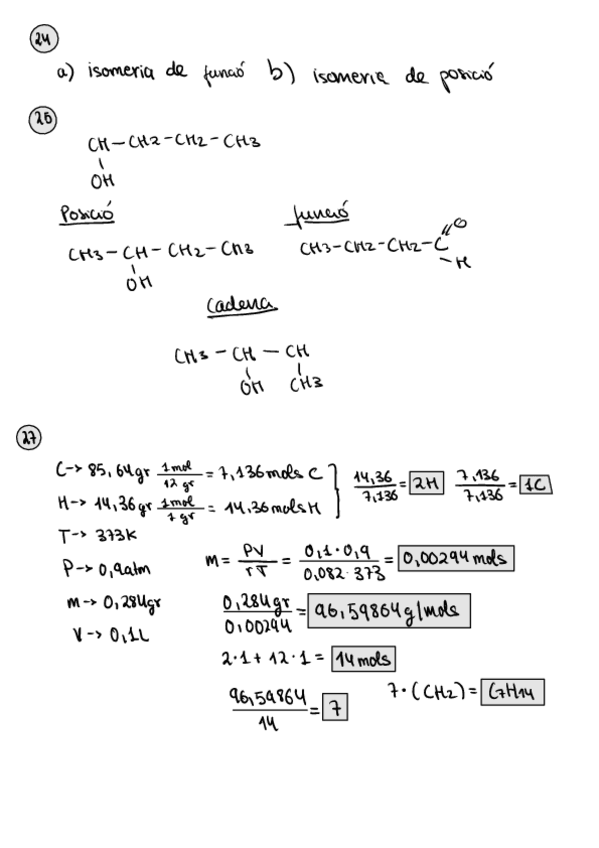 24
a) isomeria de funció b) isomeria de posició
26
CH-CH2-CH2-CH3
OH
Posició funció
CH3-CH-CH2-CH3 CH3-CH2-CH2-C
OH
O
H
Cadena
CH3-CH-CH
OH CH3
27
C-> 85,64gr 1mol/12 gr = 7,136 mols C } 14,36/7,136 = 2H 7,136/7,136 = 1C
H-> 14,36gr 1mol/1 gr = 14,36 mols H
T-> 373K
P-> 0,9atm m= PV/rT = 0,1·0,9/0,082·373 = 0,00294 mols
m-> 0,284gr 0,284gr/0,00294 = 96,59864 g/mols
V-> 0,1L
2·1+12·1 = 14 mols
96,59864/14 = 7 7·(CH2) = C7H14